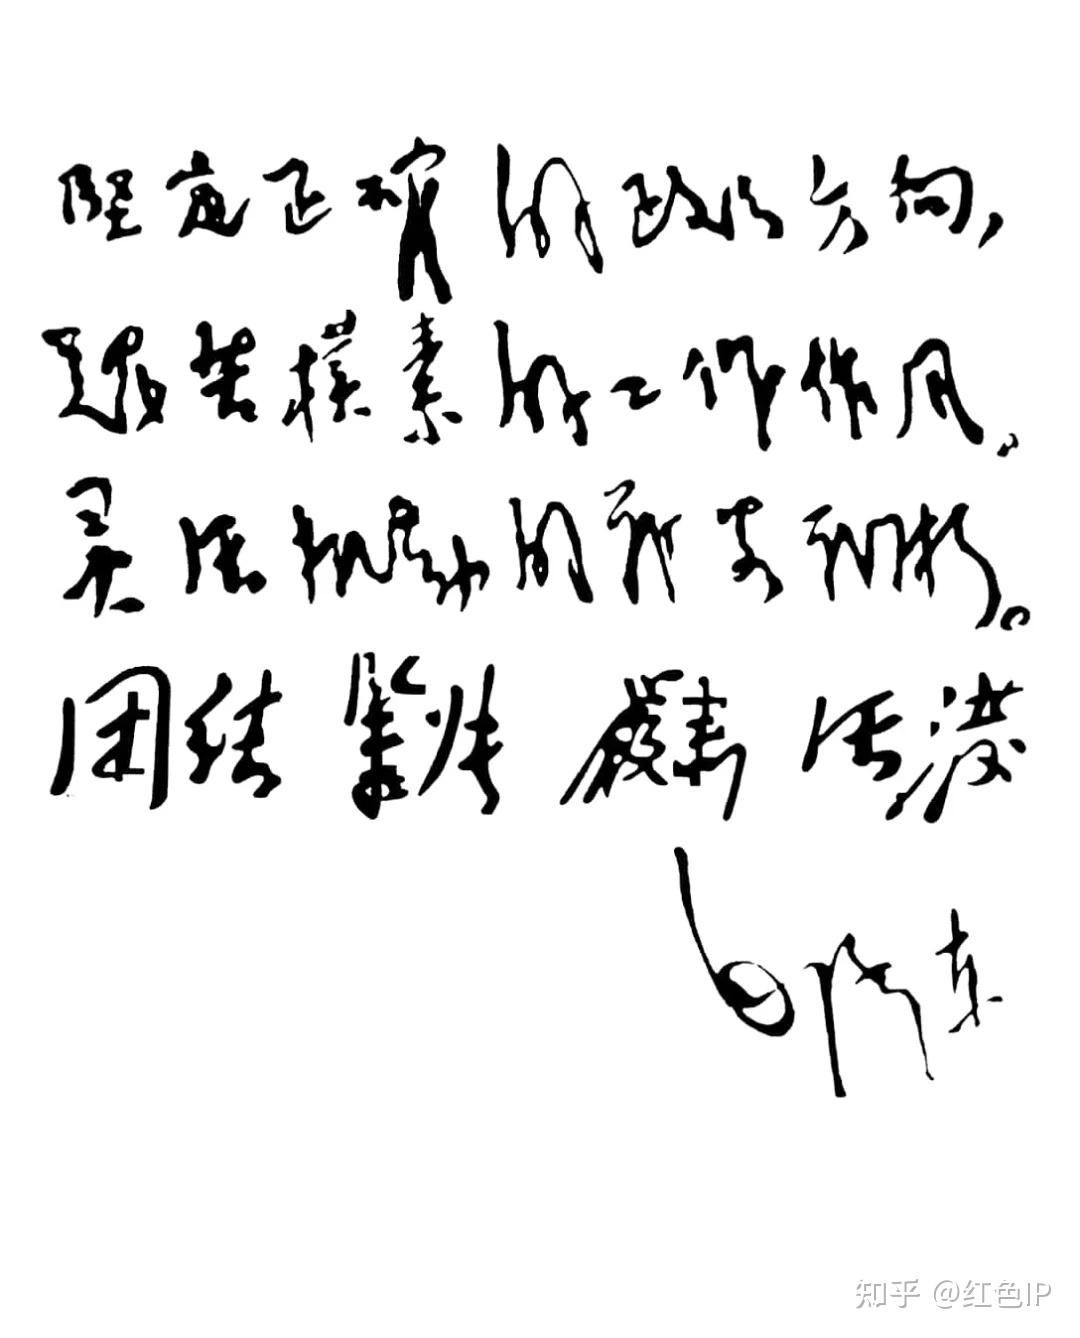 坚定正确的政治方向，
艰苦朴素的工作作风。
灵活机动的战略战术。
团结 紧张 严肃 活泼
毛泽东
知乎 @红色IP